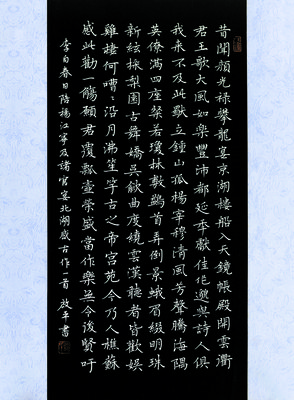 昔聞顏光祿攀龍宴京湖樓船入天鏡帳殿開雲衢
君王歌大風如樂豐沛都延年獻佳作邈與詩人俱
我來不及此獨立鍾山孤楊宰穆清風芳聲騰海隅
英僚滿四座粲若瓊林敷鷁首弄倒景蛾眉綴明珠
新絃採梨園古舞嬌吳歈曲度繞雲漢聽者皆歡娛
雞棲何嘈々沿月沸笙竽古之帝宮苑今乃人樵蘇
感此勸一觴願君覆瓢壺榮盛當作樂無令後賢吁
李白春日陪楊江寧及諸官宴北湖感古作一首 平書